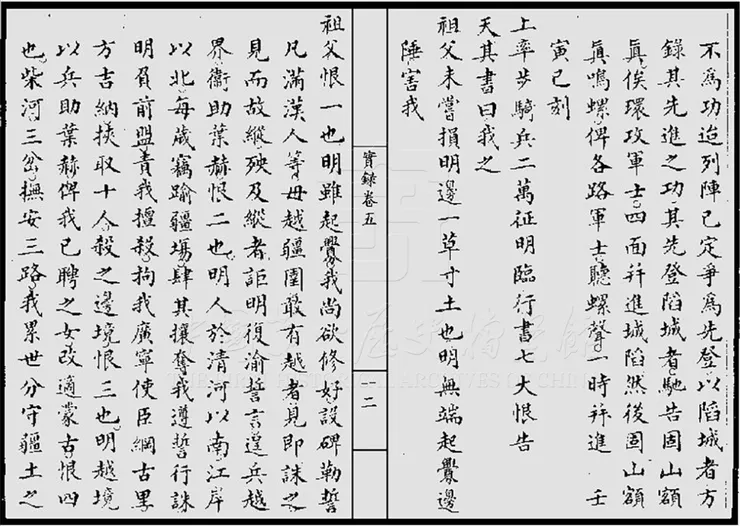 不為功迨列陣已定爭為先登以陷城者方
錄其先進之功其先登陷城者馳告固山額
真俟環攻軍士四面并進城陷然後固山額
真鳴螺俾各路軍士聽螺聲一時并進 壬
寅巳刻
上率步騎兵二萬征明臨行書七大恨告
天其書曰我之
祖父未嘗損明邊一草寸土也明無端起釁邊
陲害我
實錄卷五
一二
祖父恨一也明雖起釁我尚欲修好設碑勒誓
凡滿漢人等毋越疆圉敢有越者見即誅之
見而故縱殃及縱者詎明復渝誓言逞兵越
界衛助葉赫恨二也明人於清河以南江岸
以北每歲竊踰疆場肆其攘奪我遵誓行誅
明負前盟責我擅殺拘我廣寧使臣綱古里
方吉納挾取十人殺之邊境恨三也明越境
以兵助葉赫俾我已聘之女改適蒙古恨四
也柴河三岔撫安三路我累世分守疆土之